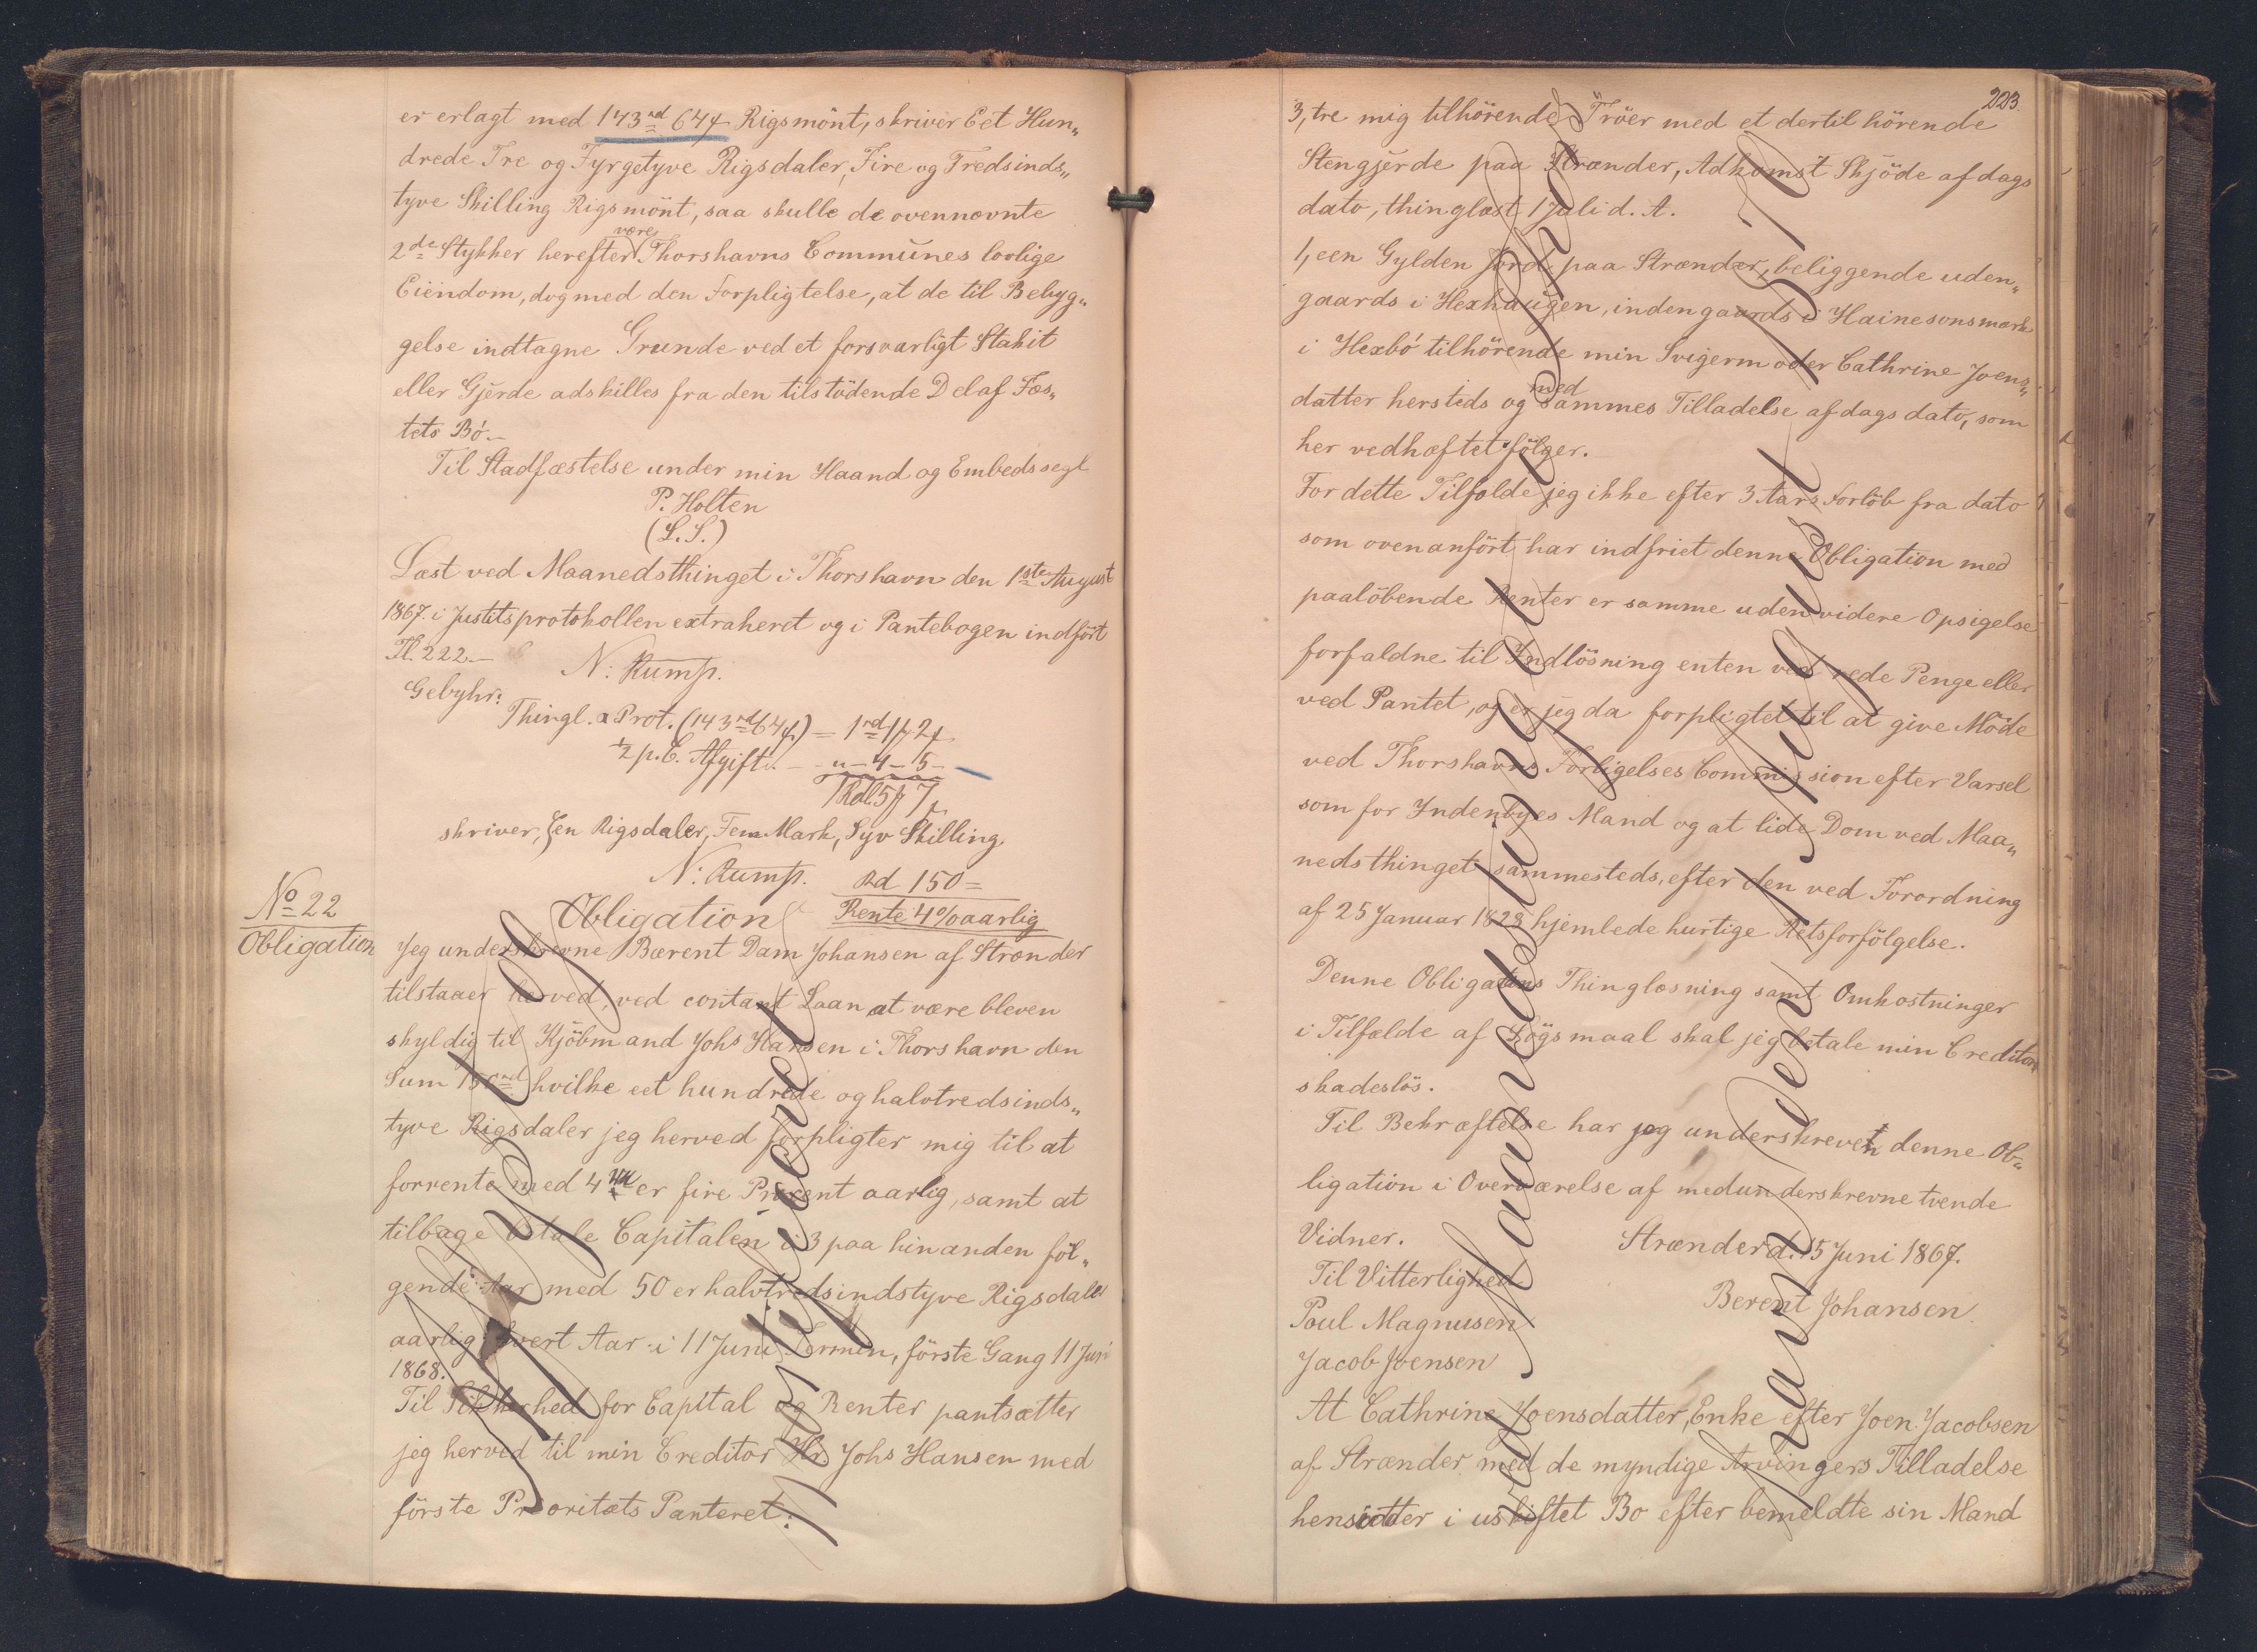 er erlagt med 143 rd 64 ſ Rigsmönt, skriver Eet Hun„
drede Tre og Fyrgetyve Rigsdaler, Fire og Tredsinds„
tyve Skilling Rigsmönt, saa skulle de ovennævnte
2de Stykker herefter være Thorshavns Communes lovlige
Eiendom, dog med den Forpligtelse, at de til Bebyg„
gelse indtagne Grunde ved et forsvarligt Stakit
eller Gjerde adskilles fra den tilstödende Del af Fæs„
tets Bö.—
Til Stadfæstelse under min Haand og Embedssegl
P. Holten
(L. S.)
Læst ved Maanedsthinget i Thorshavn den 1ste August
1867. i Justitsprotokollen extraheret og i Pantebogen indfört
Fl. 222.—
N: Rump.
Gebyhr:
Thingl. a Prot. (143 rd 64 ſ) = 1 rd 1 ℔ 2 ſ
½ p. C. Afgift. — „ — 4 — 5 —
1 Rdl. 5 ℔ 7 ſ
skriver, Een Rigsdaler, Fem Mark, Syv Skilling
N: Rump.
No 22
Obligation
Rd 150 =
Obligation
Rente 4 % aarlig
Jeg underskrevne Bærent Dam Johansen af Strænder
tilstaaer herved, ved contant Laan at være bleven
skyldig til Kjöbmand Johs Hansen i Thorshavn den
Sum 150 rd hvilke eet hundrede og halvtredsinds„
tyve Rigsdaler jeg herved forpligter mig til at
forrente med 4 er fire Procent aarlig, samt at
tilbage betale Capitalen i 3 paa hinanden föl„
gende Aar med 50 er halvtredsindstyve Rigsdaler
aarlig hvert Aar i 11 Juni Termin, förste Gang 11 Juni
1868.
Til Sikkerhed for Capital og Renter pantsætter
jeg herved til min Creditor Hr. Johs Hansen med
förste Prioritets Panteret:
223
3, tre mig tilhörende Tröer med et dertil hörende
Stengjerde paa Strænder, Adkomst Skjöde af dags
dato, thinglæst 1 Juli d. A.
1, een Gylden Jord paa Strænder, beliggende uden„
gaards i Hexhaugen, indengaards i Hainesonsmark
i Hexbö tilhörende min Svigermoder Cathrine Joens„
datter hersteds og med sammes Tilladelse af dags dato, som
her vedhæftet fölger.
For dette Tilfælde jeg ikke efter 3 Aars Forlöb fra dato
som ovenanfört har indfriet denne Obligation med
paalöbende Renter er samme uden videre Opsigelse
forfaldne til Indlösning enten ved rede Penge eller
ved Pantet, og er jeg da forpligtet til at give Möde
ved Thorshavns Forligelses Commission efter Varsel
som for Indenbyes Mand og at lide Dom ved Maa„
nedsthinget sammesteds, efter den ved Forordning
af 25 Januar 1828 hjemlede hurtige Retsforfölgelse.
Denne Obligations Thinglæsning samt Omkostninger
i Tilfælde af Sögsmaal skal jeg betale min Creditor
skadeslös.
Til Bekræftelse har jeg underskrevet denne Ob„
ligation i Overværelse af medunderskrevne tvende
Vidner.
Strænder d. 15 Juni 1867.
Til Vitterlighed
Berent Johansen.
Poul Magnusen
Jacob Joensen
At Cathrine Joensdatter, Enke efter Joen Jacobsen
af Strænder med de myndige Arvingers Tilladelse
hensidder i uskiftet Bo efter bemeldte sin Mand